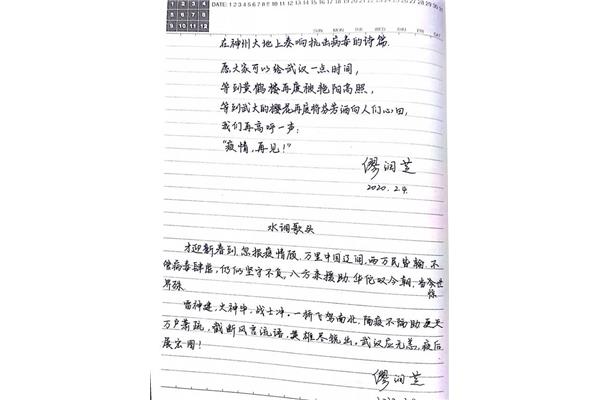 1 2 3 4
5 6 7 8
9 10 11 12
DATE: 1 2 3 4 5 6 7 8 9 10 11 12 13 14 15 16 17 18 19 20 21 22 23 24 25 26 27 28 29 30 31
在神州大地上奏响抗击病毒的诗篇.
愿大家可以给武汉一点时间,
等到黄鹤楼再度被艳阳高照,
等到武大的樱花再度将芬芳洒向人们心田,
我们再高呼一声:
“疫情,再见!”
缪润芝
2020.2.4.
水调歌头
才迎新春到,忽报疫情版.万里中国辽阔,两万民皆翰.不
管病毒肆虐,仍仍坚守不负,八方来援助.华佗叹今朝,当今世
界殊.
雷神建,火神毕,战士冲.一桥飞驾南北,隔疫不隔助.更无
万户萧疏,截断风言流语,英雄尽锐出.武汉应无恙,疫后
展宏图!
缪润芝